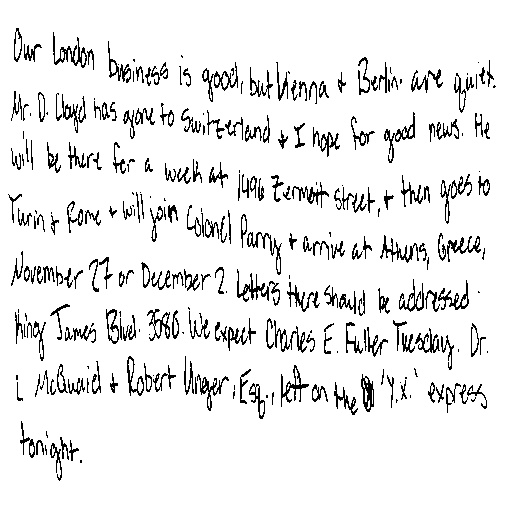 Our London business is good, but Vienna + Berlin. are quiet.
Mr. D. Lloyd has gone to Switzerland + I hope for good news. He
will be there for a week at 1496 Zermott street, + then goes to
Turin + Rome + will join Colonel Parry + arrive at Athens, Greece,
November 27 or December 2. Letters there should be addressed.
King James Blvd. 3580. We expect Charles E. Fuller Tuesday. Dr.
L McQuaid + Robert Unger, Esq., left on the 'Y.X.' express
tonight.